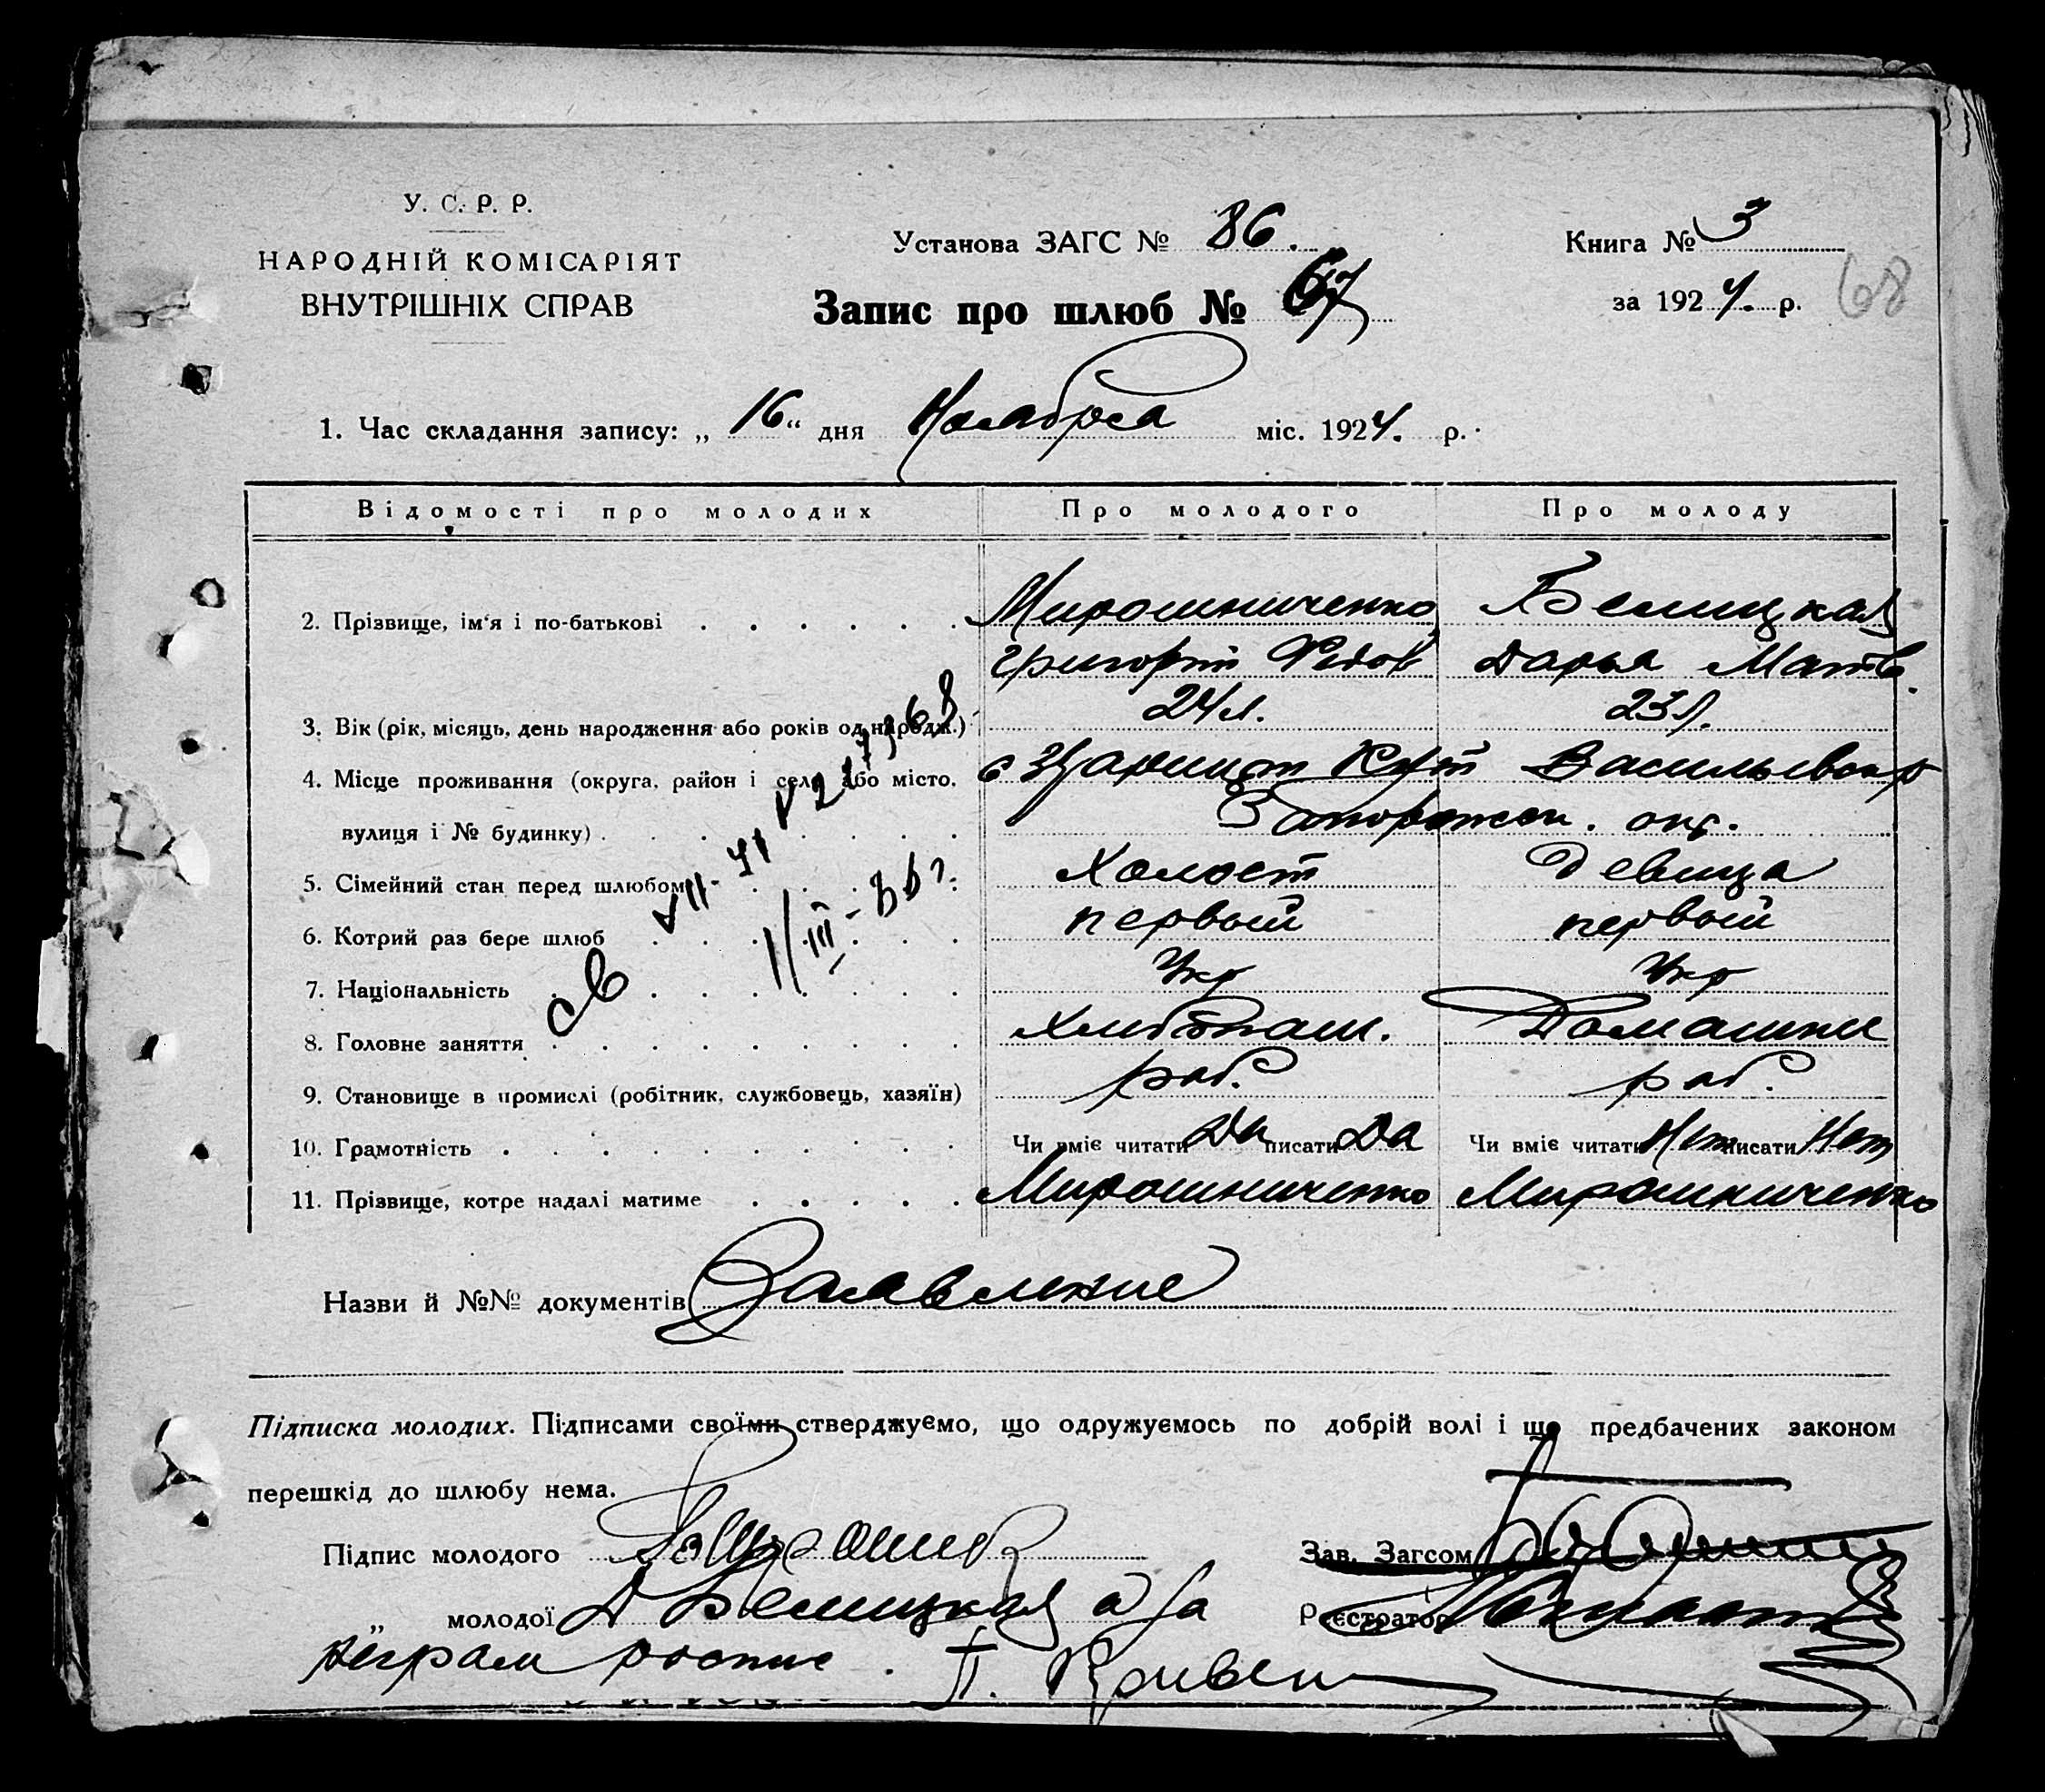 У. С. Р. Р.
НАРОДНІЙ КОМІСАРІЯТ
ВНУТРІШНІХ СПРАВ
Установа ЗАГС № 86.
Запис про шлюб № 67
Книга № 3
за 1924. р.
68
1. Час складання запису: „ 16 “ дня Ноября міс. 1924. р.
Відомості про молодих Про молодого Про молоду
2. Прізвище, ім'я і по-батькові Мирошниченко Белицкая
Григорий Федов Дарья Матв.
3. Вік (рік, місяць, день народження або років од народж.) 24 л. 23 л.
4. Місце проживання (округа, район і село або місто, Васильевск р
вулиця і № будинку) Запорожск. окр.
5. Сімейний стан перед шлюбом Холост девица
6. Котрий раз бере шлюб первый первый
7. Національність Укр Укр
8. Головне заняття Хлебопаш. Домашня
9. Становище в промислі (робітник, службовець, хазяїн) раб. раб.
10. Грамотність Чи вміє читати Да писати Да Чи вміє читати Нет писати Нет
11. Прізвище, котре надалі матиме Мирошниченко Мирошниченко
Назви й №№ документів Заявление
Підписка молодих. Підписами своїми стверджуємо, що одружуємось по добрій волі і що предбачених законом
перешкід до шлюбу нема.
Підпис молодого
Зав. Загсом
„ молодої Д Белицкая а за
Реєстратор
неграм роспис. П. Кривен